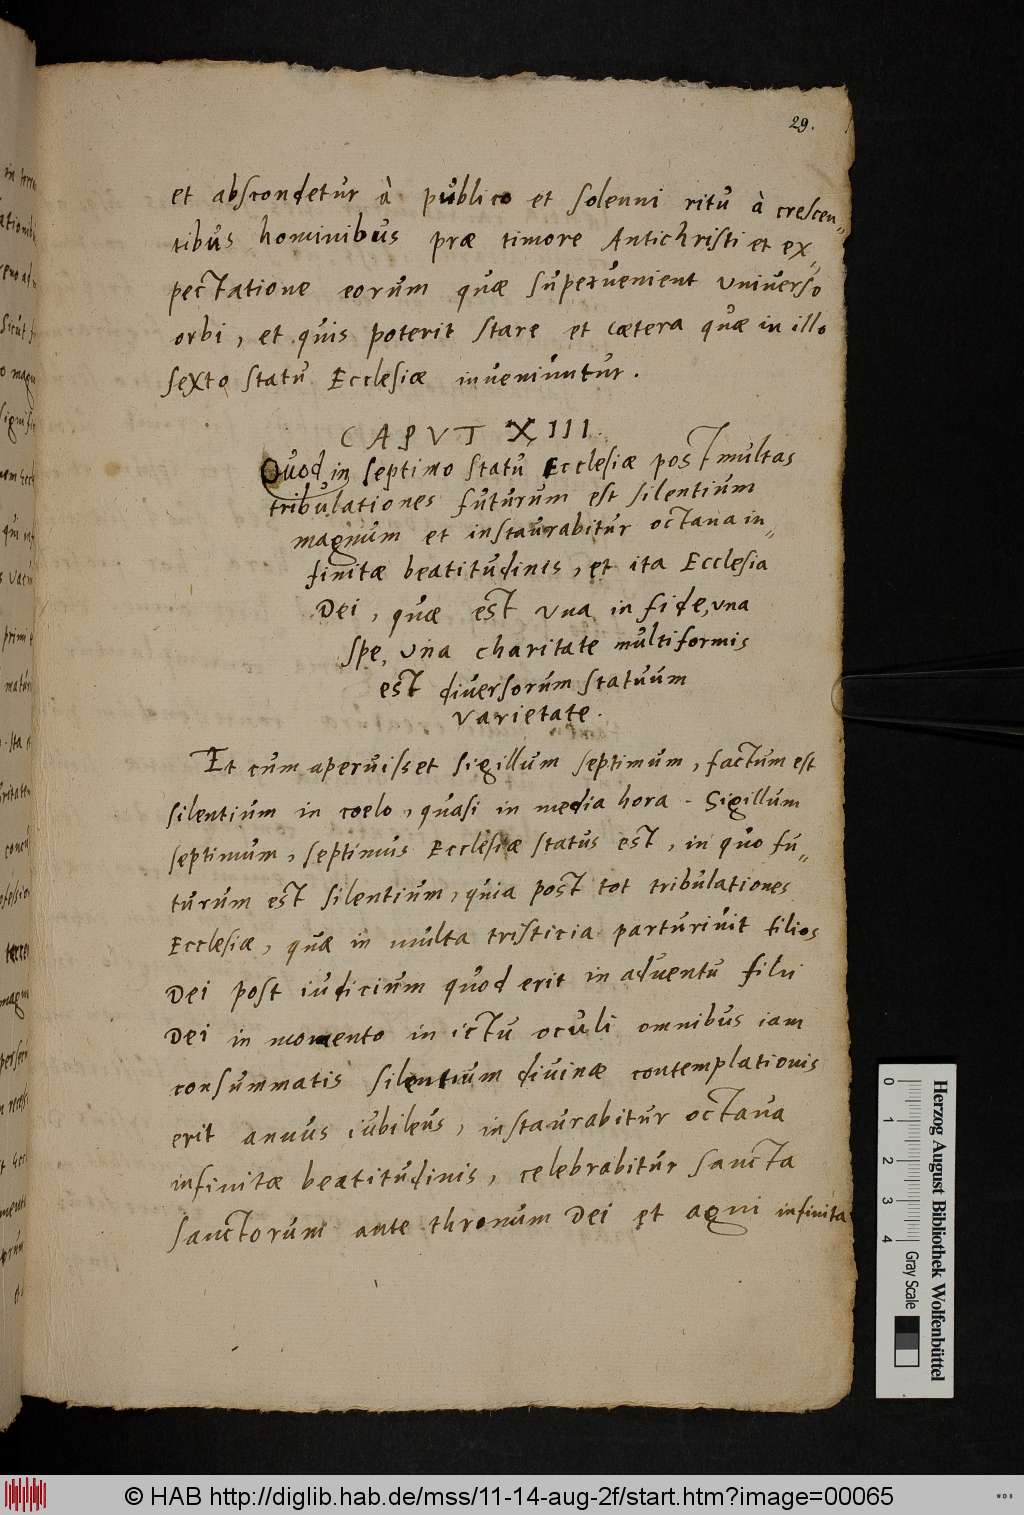 29.
et abscondetur à publico et solenni ritu à crescen„
tibus hominibus præ timore Antichristi et ex„
pectatione eorum quæ superuenient vniuerso
orbi, et quis poterit stare et cætera quæ in illo
sexto statu Ecclesiæ inueniuntur.
CAPVT XIII.
Quod in septimo statu Ecclesiæ post multas
tribulationes futurum est silentium
magnum et instaurabitur octaua in„
finitæ beatitudinis, et ita Ecclesia
Dei, quæ est vna in fide, vna
spe, vna charitate multiformis
est diuersorum statuum
varietate.
Et cum aperuisset sigillum septimum, factum est
silentium in coelo, quasi in media hora. Sigillum
septimum, septimus Ecclesiæ status est, in quo fu„
turum est silentium, quia post tot tribulationes
Ecclesiæ, quæ in multa tristicia parturiuit filios
Dei post iudicium quod erit in aduentu filii
Dei in momento in ictu oculi omnibus iam
consummatis silentium diuinæ contemplationis
erit annus iubileus, instaurabitur octaua
infinitæ beatitudinis, celebrabitur sancta
sanctorum ante thronum Dei et agni infinita
Herzog August Bibliothek Wolfenbüttel
0 1 2 3 4 Gray Scale
© HAB http://diglib.hab.de/mss/11-14-aug-2f/start.htm?image=00065